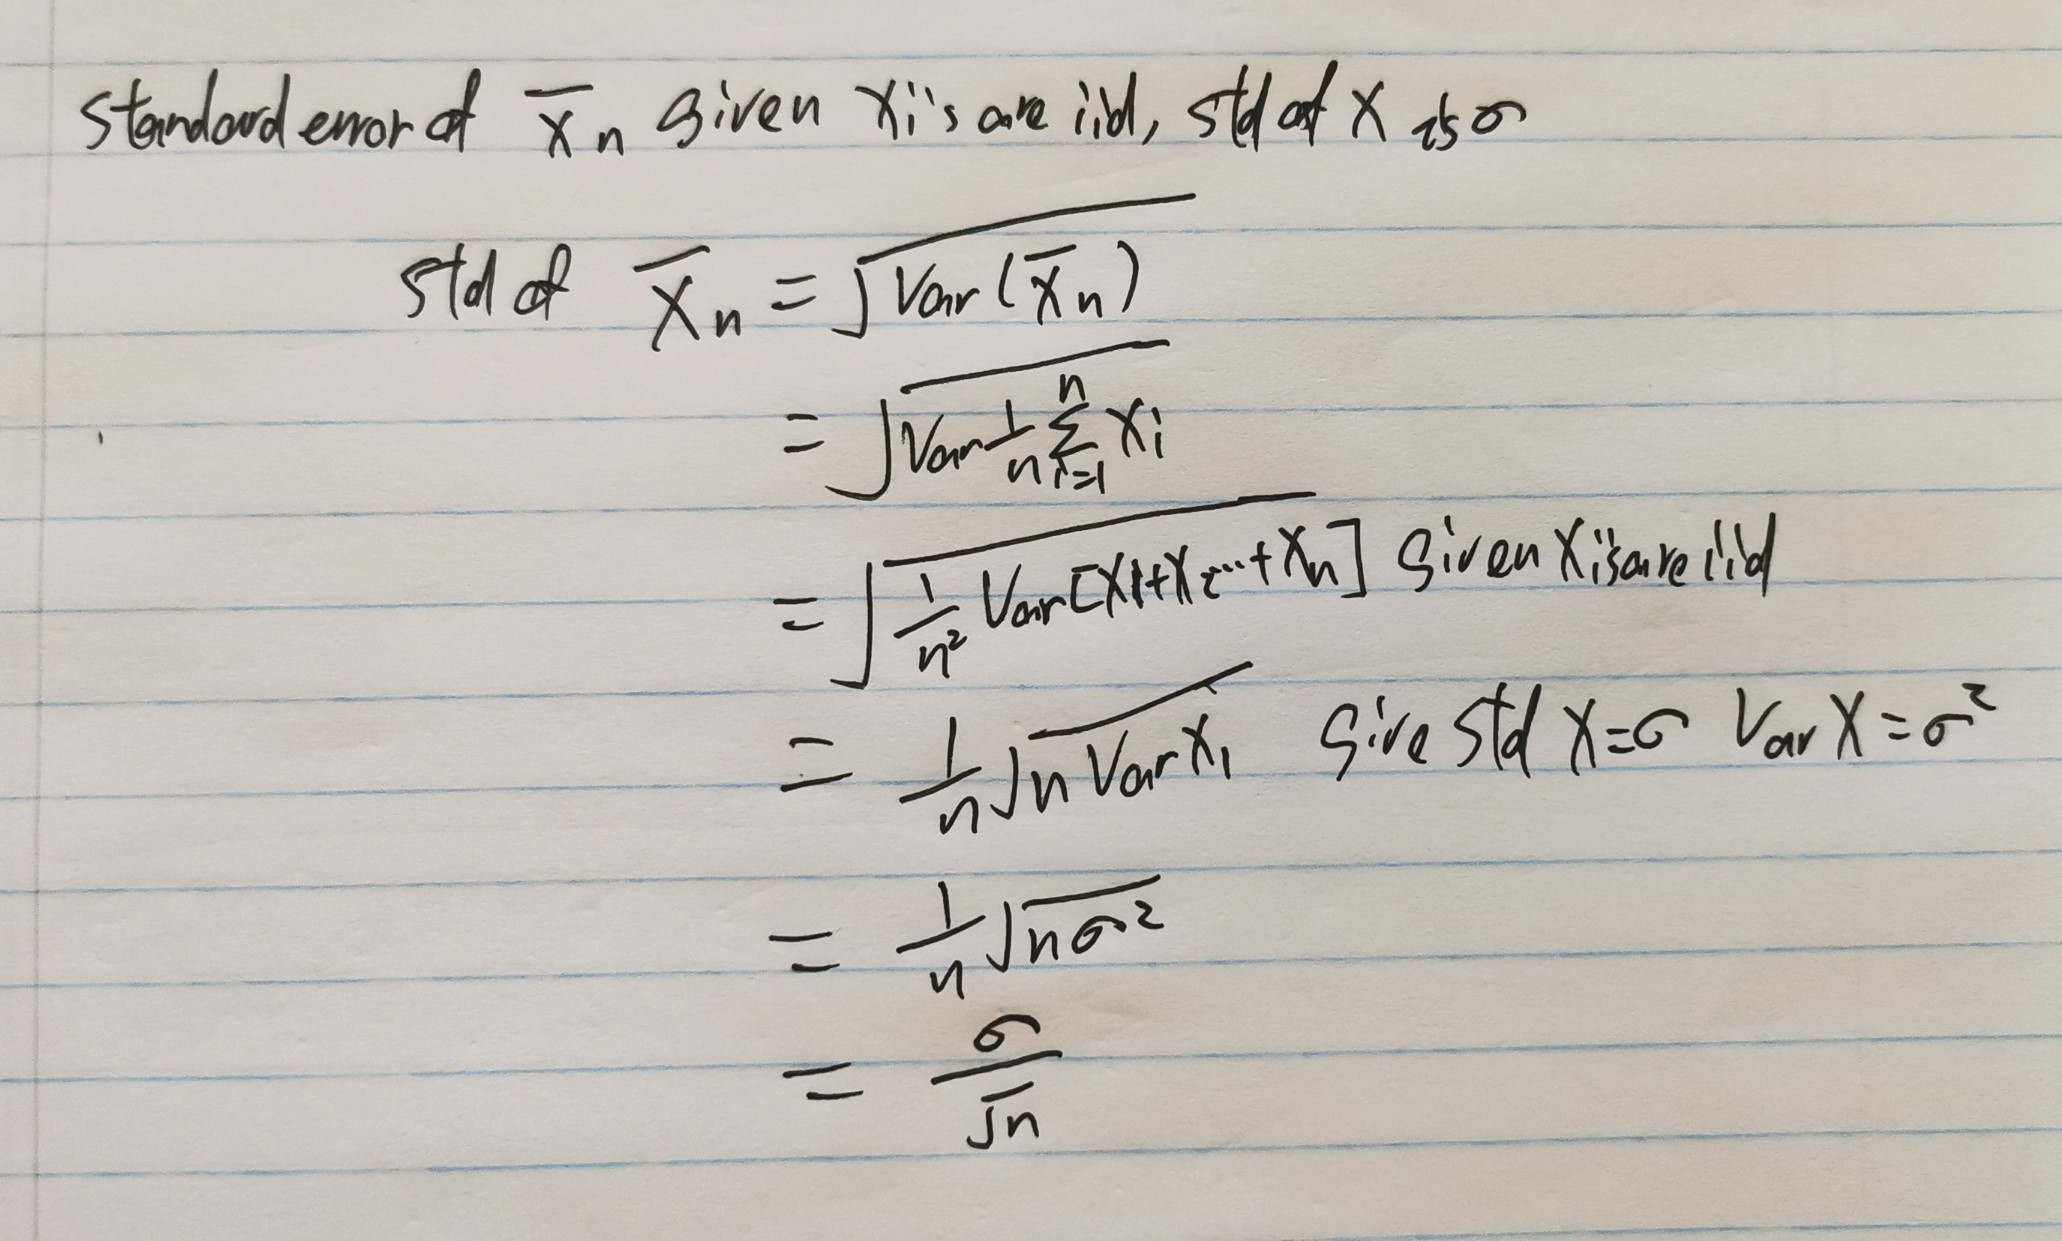 standard error of X̄n given Xi's are iid, std of X is σ
std of X̄n = √Var(X̄n)
= √Var 1/n Σ i=1 n Xi
= √1/n² Var[X1+X2...+Xn] given Xi's are iid
= 1/n √n Var X1 give std X=σ Var X=σ²
= 1/n √nσ²
= σ/√n